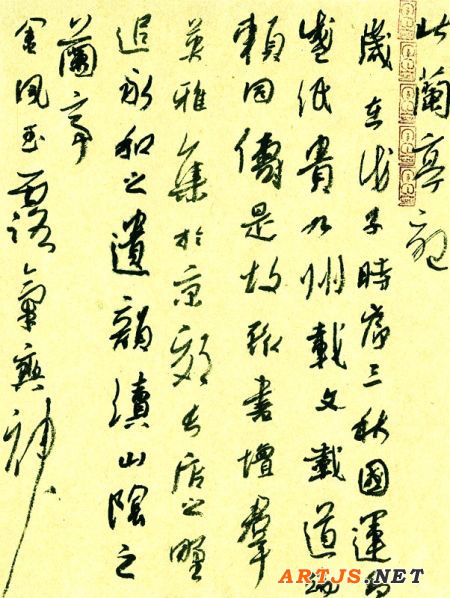 此蘭亭
歲在戊子時序三秋國運
盛紙貴九州載文載道
賴同儔是故聊書壇羣
英雅集於京郊長居之野
追永和之遺韻續山陰之
蘭亭
金風玉露氣爽神
ARTJS.NET